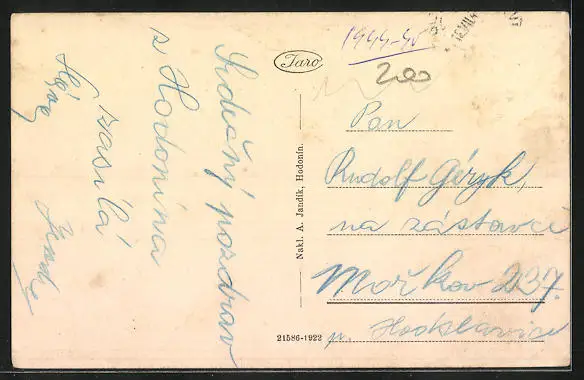 Srdečný pozdrav
z Hodonína
zasílá
1944-45
200
Taro
Nakl. A. Jandík, Hodonín.
21586-1922
Pan
Rudolf Géryk,
na zástavci
Mořkov 237.
p. Hodslavice